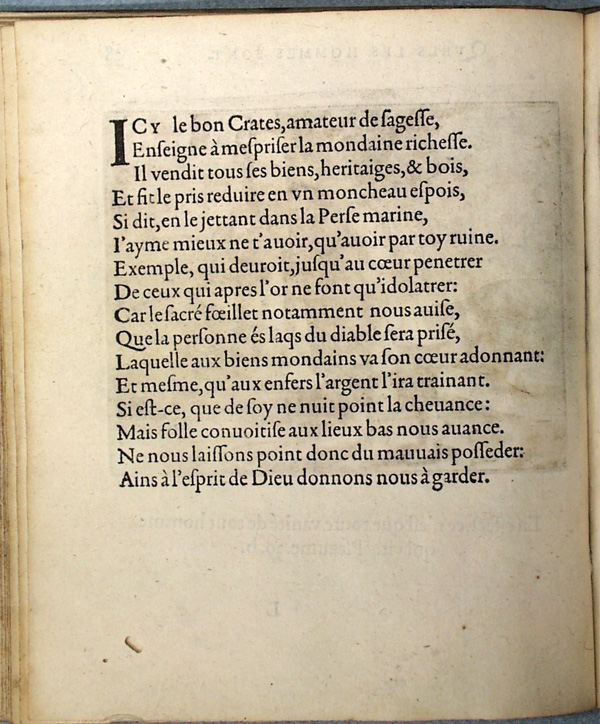 ICY le bon Crates, amateur de ſageſſe,
Enſeigne à meſpriſer la mondaine richeſſe.
Il vendit tous ſes biens, heritaiges, & bois,
Et fit le pris reduire en vn moncheau eſpois,
Si dit, en le jettant dans la Perſe marine,
I'ayme mieux ne t'auoir, qu'auoir par toy ruine.
Exemple, qui deuroit, juſqu'au cœur penetrer
De ceux qui apres l'or ne font qu'idolatrer:
Car le ſacré fœillet notamment nous auiſe,
Que la perſonne és laqs du diable ſera priſé,
Laquelle aux biens mondains va ſon cœur adonnant:
Et meſme, qu'aux enfers l'argent l'ira trainant.
Si eſt-ce, que de ſoy ne nuit point la cheuance:
Mais folle conuoitiſe aux lieux bas nous auance.
Ne nous laiſſons point donc du mauuais poſſeder:
Ains à l'eſprit de Dieu donnons nous à garder.